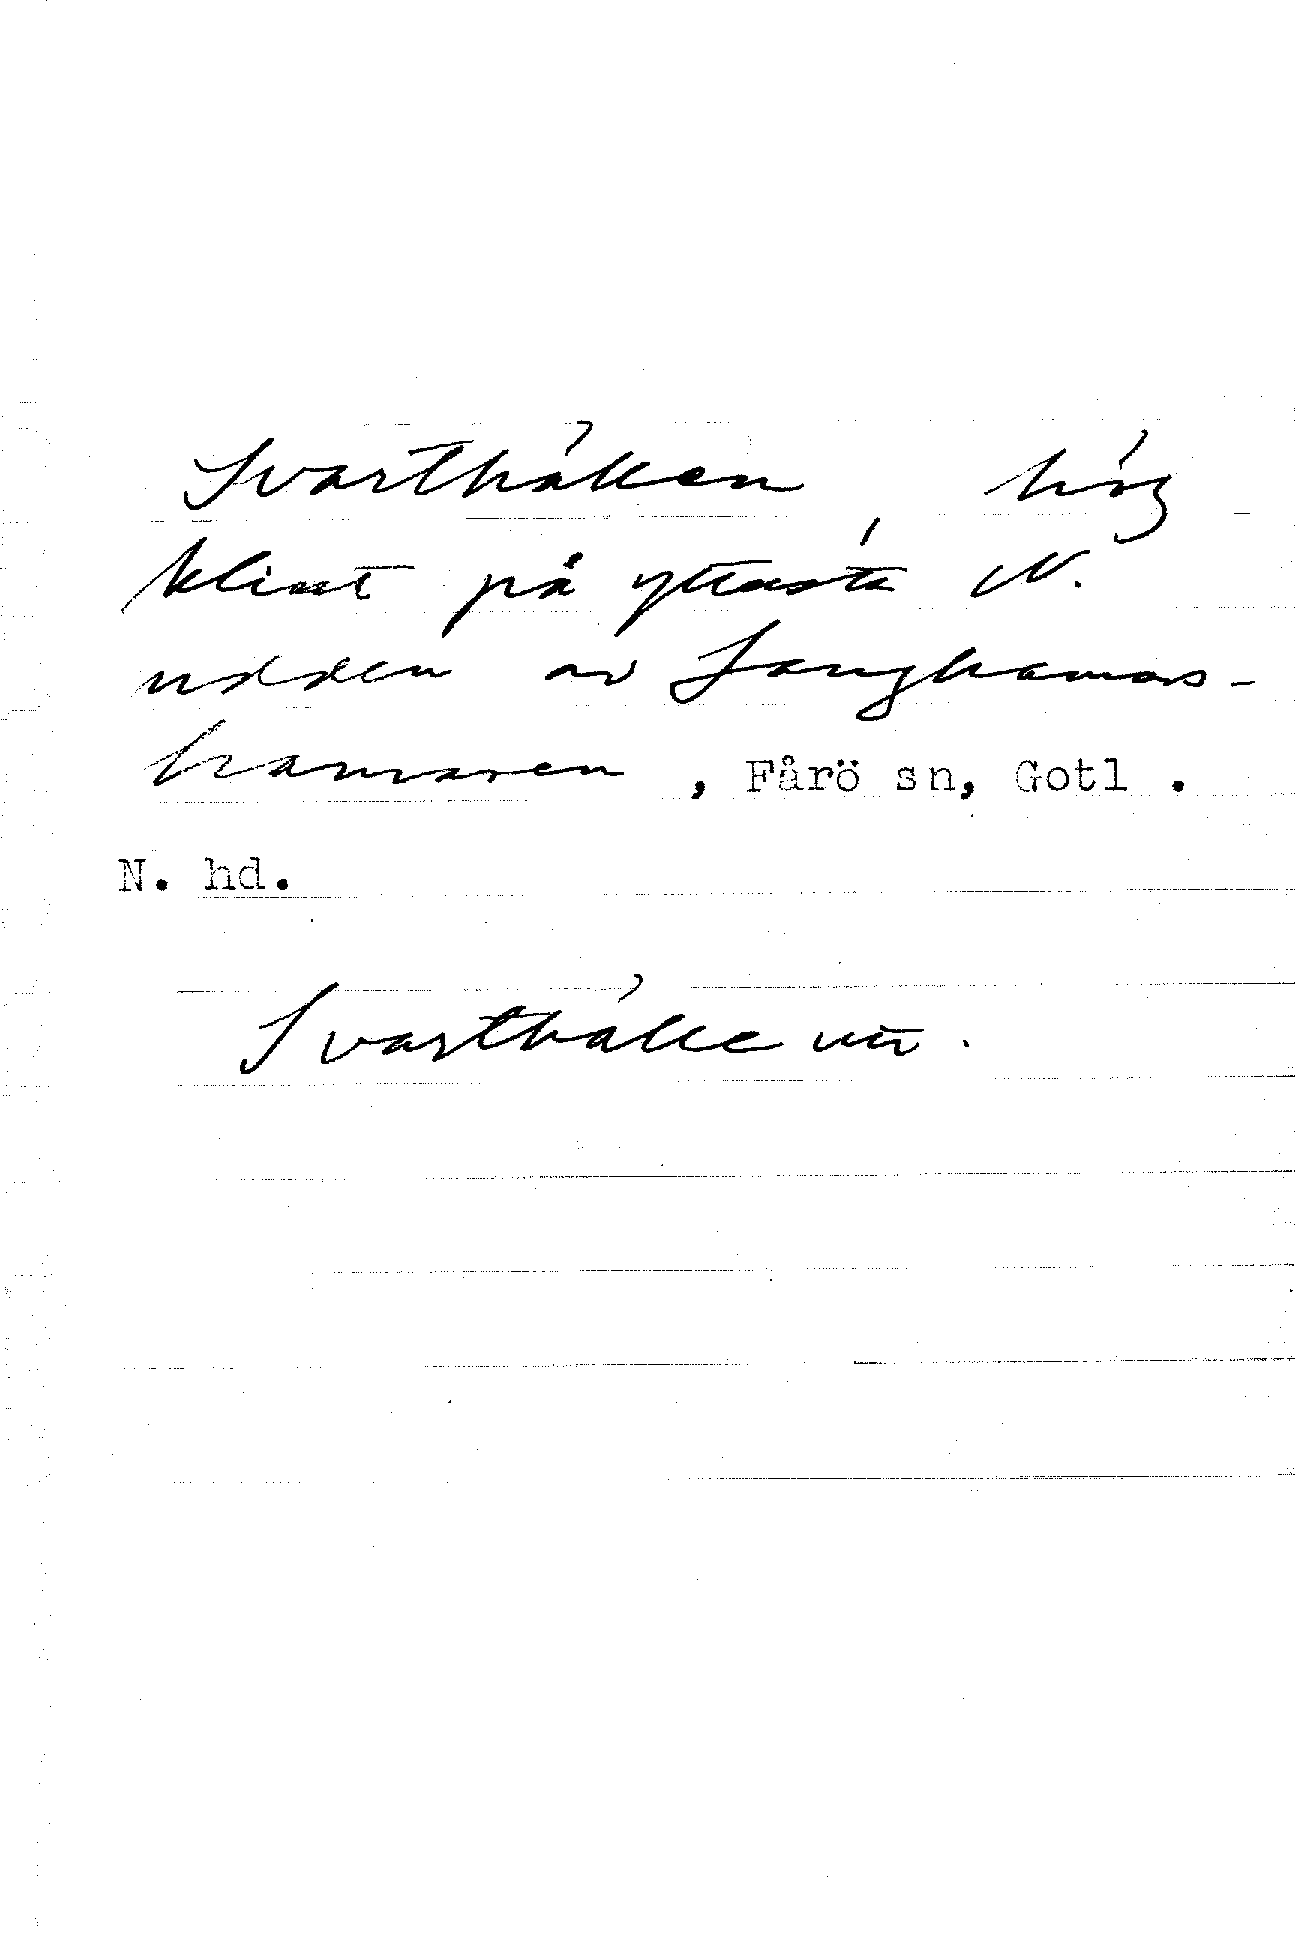 Svarthällen, hög
klint på yttersta N.
udden av Langhamars-
hamaren, Fårö sn, Gotl.
N. hd.
Svarthälle